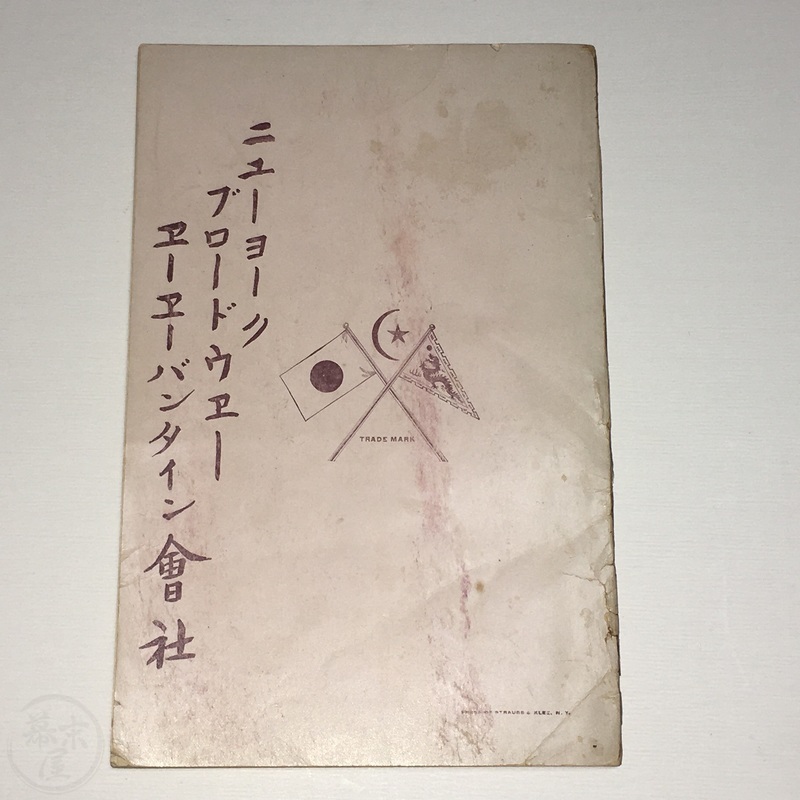 ニューヨーク
ブロードウヱー
ヱーヱーバンタイン會社
TRADE MARK
PRESS OF STRAUSS & KLEE, N. Y.
幕末屋